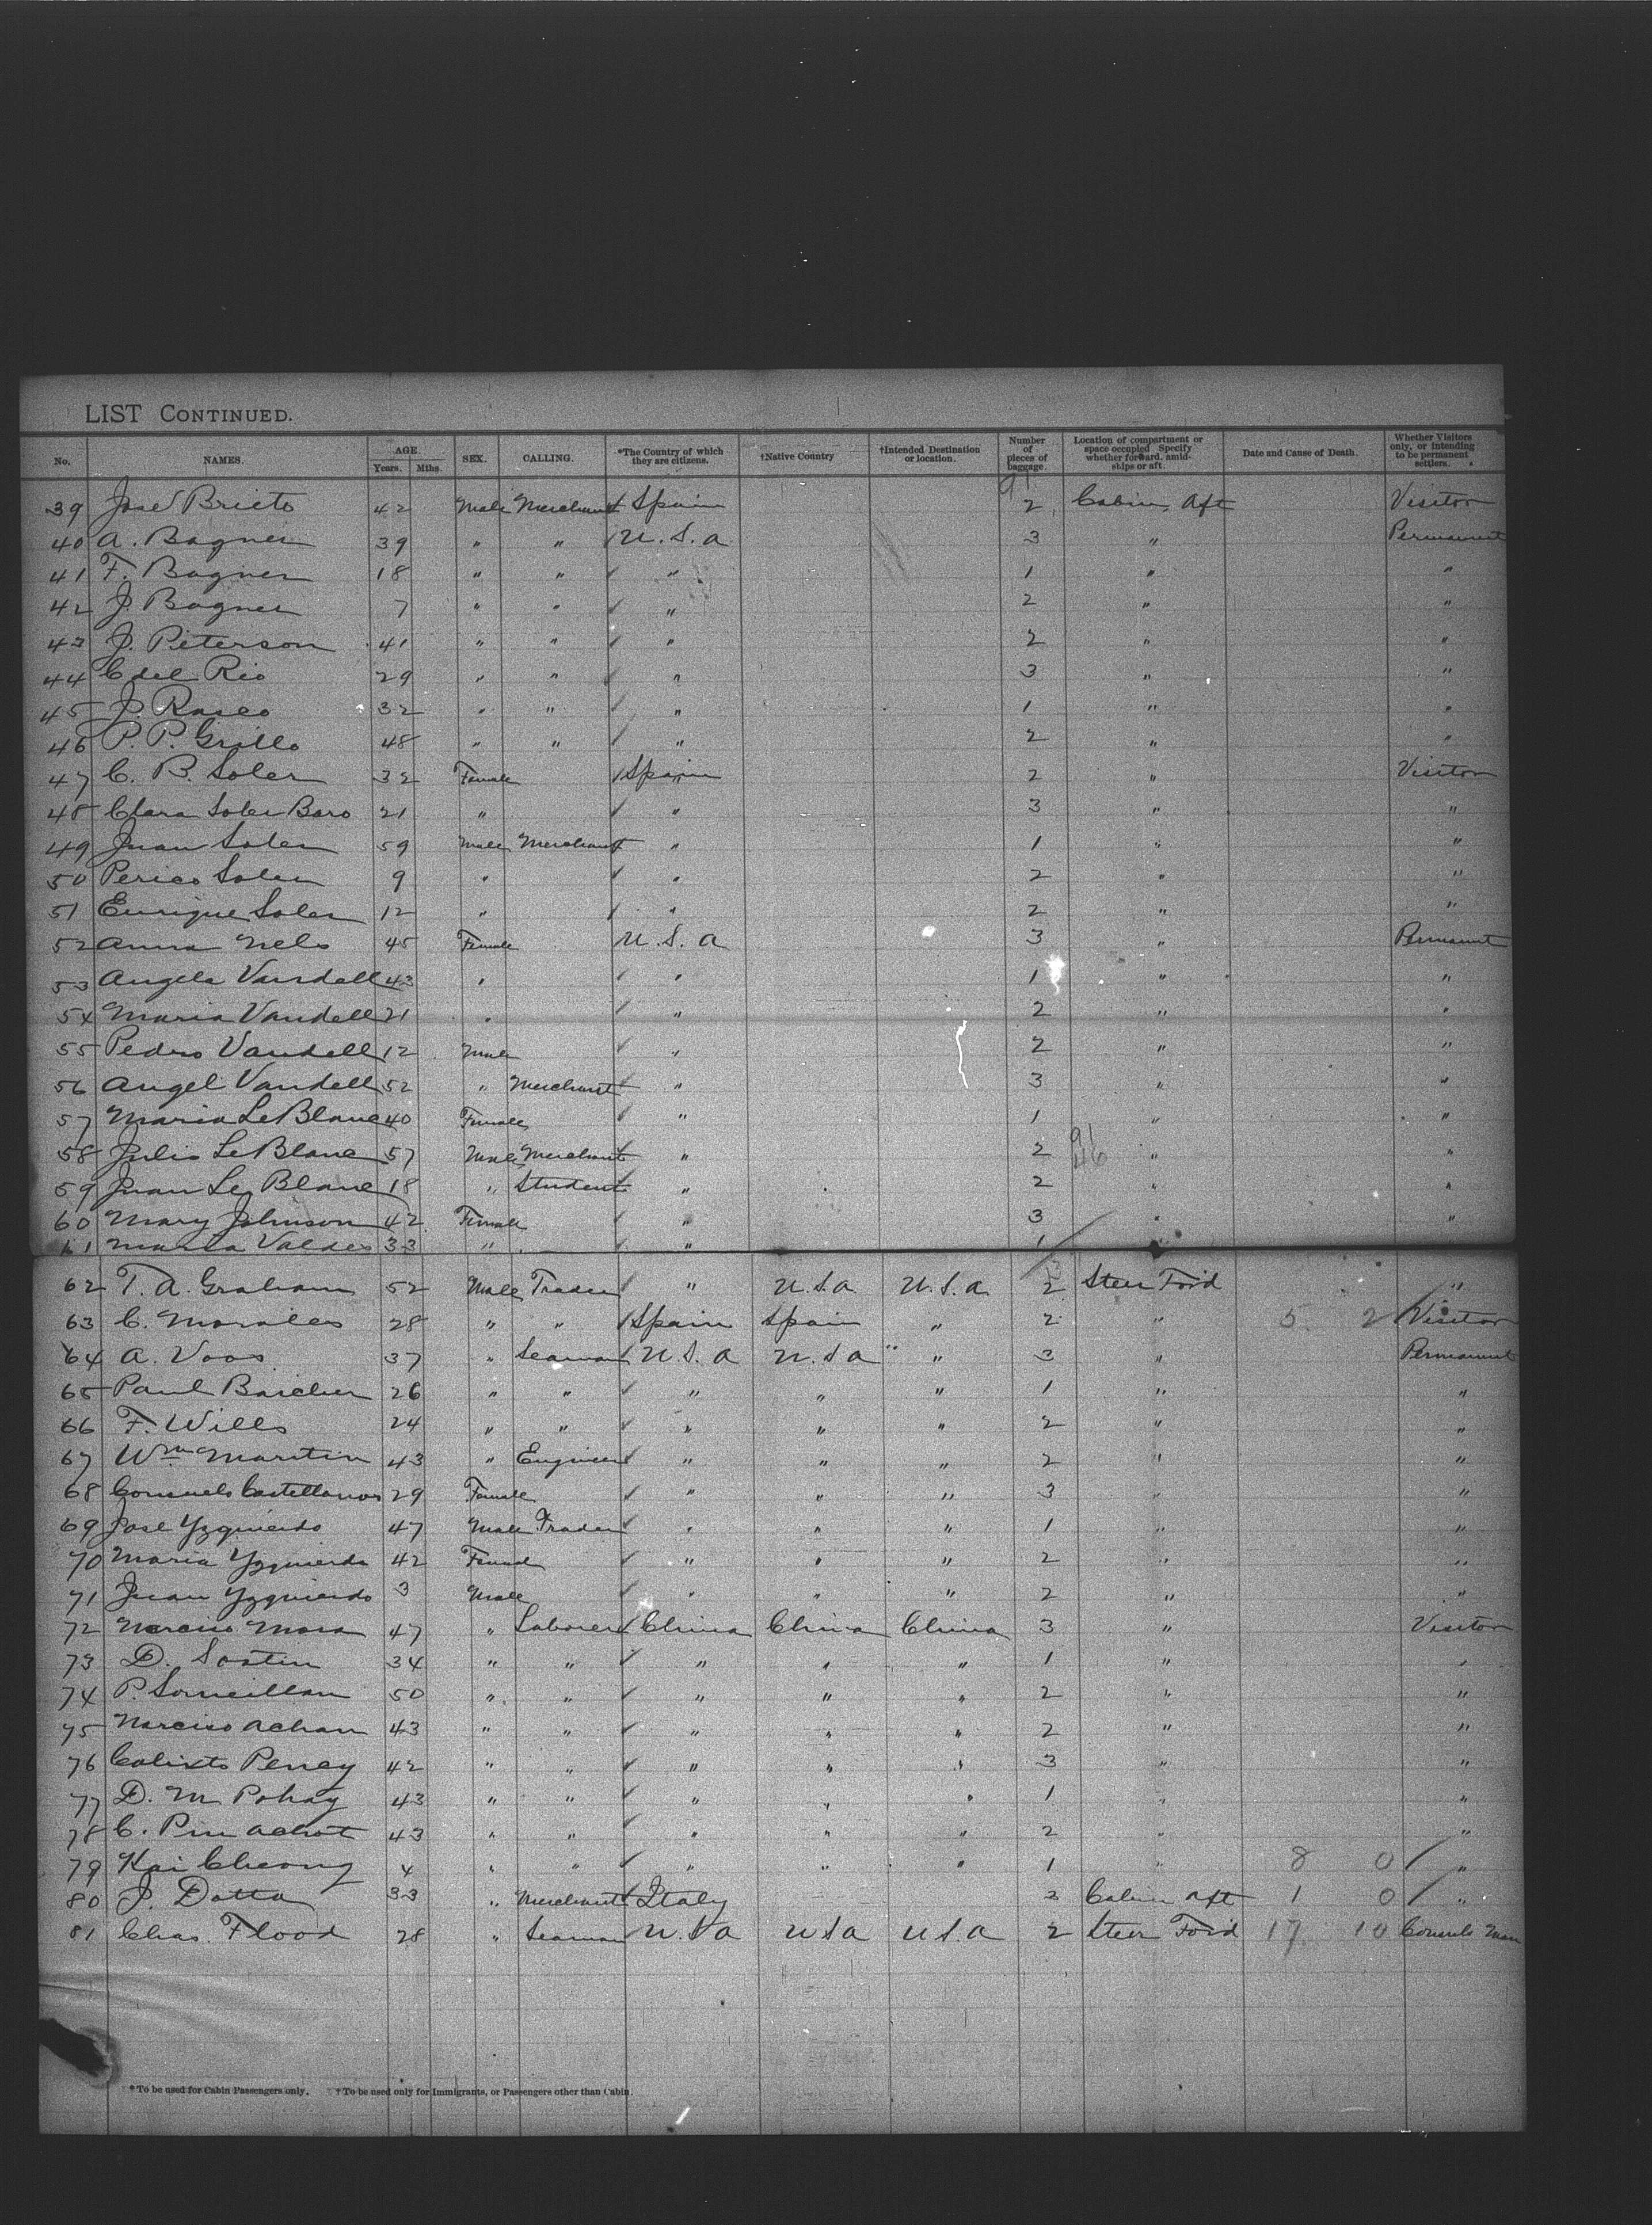 LIST CONTINUED.
No. NAMES. AGE. Years. Mths. SEX. CALLING. *The Country of which they are citizens. †Native Country †Intended Destination or location. Number of pieces of baggage. Location of compartment or space occupied. Specify whether forward, amidships or aft. Date and Cause of Death. Whether Visitors only, or intending to be permanent settlers.
39 José Brieto 42 Male Merchant Spain 2 Cabin Aft Visitor
40 A. Bagner 39 " " U.S.A 3 " Permanent
41 F. Bagner 18 " " " 1 " "
42 J. Bagner 7 " " " 2 " "
43 J. Peterson 41 " " " 2 " "
44 C del Rio 29 " " " 3 " "
45 J. Rasco 32 " " " 1 " "
46 P. P. Grillo 48 " " " 2 " "
47 C. B. Soler 32 Female Spain 2 " Visitor
48 Clara Soler Baro 21 " " 3 " "
49 Juan Soler 59 Male Merchant " 1 " "
50 Perico Soler 9 " " 2 " "
51 Enrique Soler 12 " " 2 " "
52 Anna Nels 45 Female U.S.A 3 " Permanent
53 Angela Vandell 43 " " 1 " "
54 Maria Vandell 21 " " 2 " "
55 Pedro Vandell 12 Male " 2 " "
56 Angel Vandell 52 " Merchant " 3 " "
57 Maria LeBlanc 40 Female " 1 " "
58 Julio LeBlanc 57 Male Merchant " 2 " "
59 Juan Le Blanc 18 " Student " 2 " "
60 Mary Johnson 42 Female " 3 " "
61 Maria Valdes 33 " " 1 "
62 T. A. Graham 52 Male Trader " U.S.A U.S.A 2 Steer Fo'd "
63 C. Morales 28 " " Spain Spain " 2 " 5 2 Visitor
64 A. Voos 37 " Seaman U.S.A U.S.A " 3 " Permanent
65 Paul Baicher 26 " " " " " 1 " "
66 F. Wills 24 " " " " " 2 " "
67 Wm Martin 43 " Engineer " " " 2 " "
68 Consuelo Castellanos 29 Female " " " 3 " "
69 Jose Yzquierdo 47 Male Trader " " " 1 " "
70 Maria Yzquierdo 42 Female " " " 2 " "
71 Juan Yzquierdo 3 Male " " " 2 " "
72 Narciso Mora 47 " Laborer China China China 3 " Visitor
73 D. Sostin 34 " " " " " 1 " "
74 P. Someillan 50 " " " " " 2 " "
75 Narciso Achan 43 " " " " " 2 " "
76 Calixto Peney 42 " " " " " 3 " "
77 D. M Pohay 43 " " " " " 1 " "
78 C. Pin Achot 43 " " " " " 2 " "
79 Kai Cheong 4 " " " " " 1 " 8 0 "
80 J. Datta 33 " Merchant Italy 2 Cabin Aft 1 0 "
81 Chas. Flood 28 " Seaman U.S.A U.S.A U.S.A 2 Steer Fo'd 17 10 Consuls Man
*To be used for Cabin Passengers only. †To be used only for Immigrants, or Passengers other than Cabin.